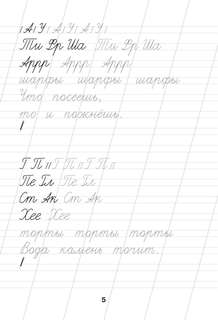 А1У А1У А1У
Ти Вр Ша Ти Вр Ша
Аррр Аррр Аррр
шарфы шарфы шарфы
Что посеешь,
то и пожнёшь.
Г П Г П Г П
Пе Бл Пе Бл
Ст Ак Ст Ак
Хее Хее
торты торты торты
Вода камень точит.
5